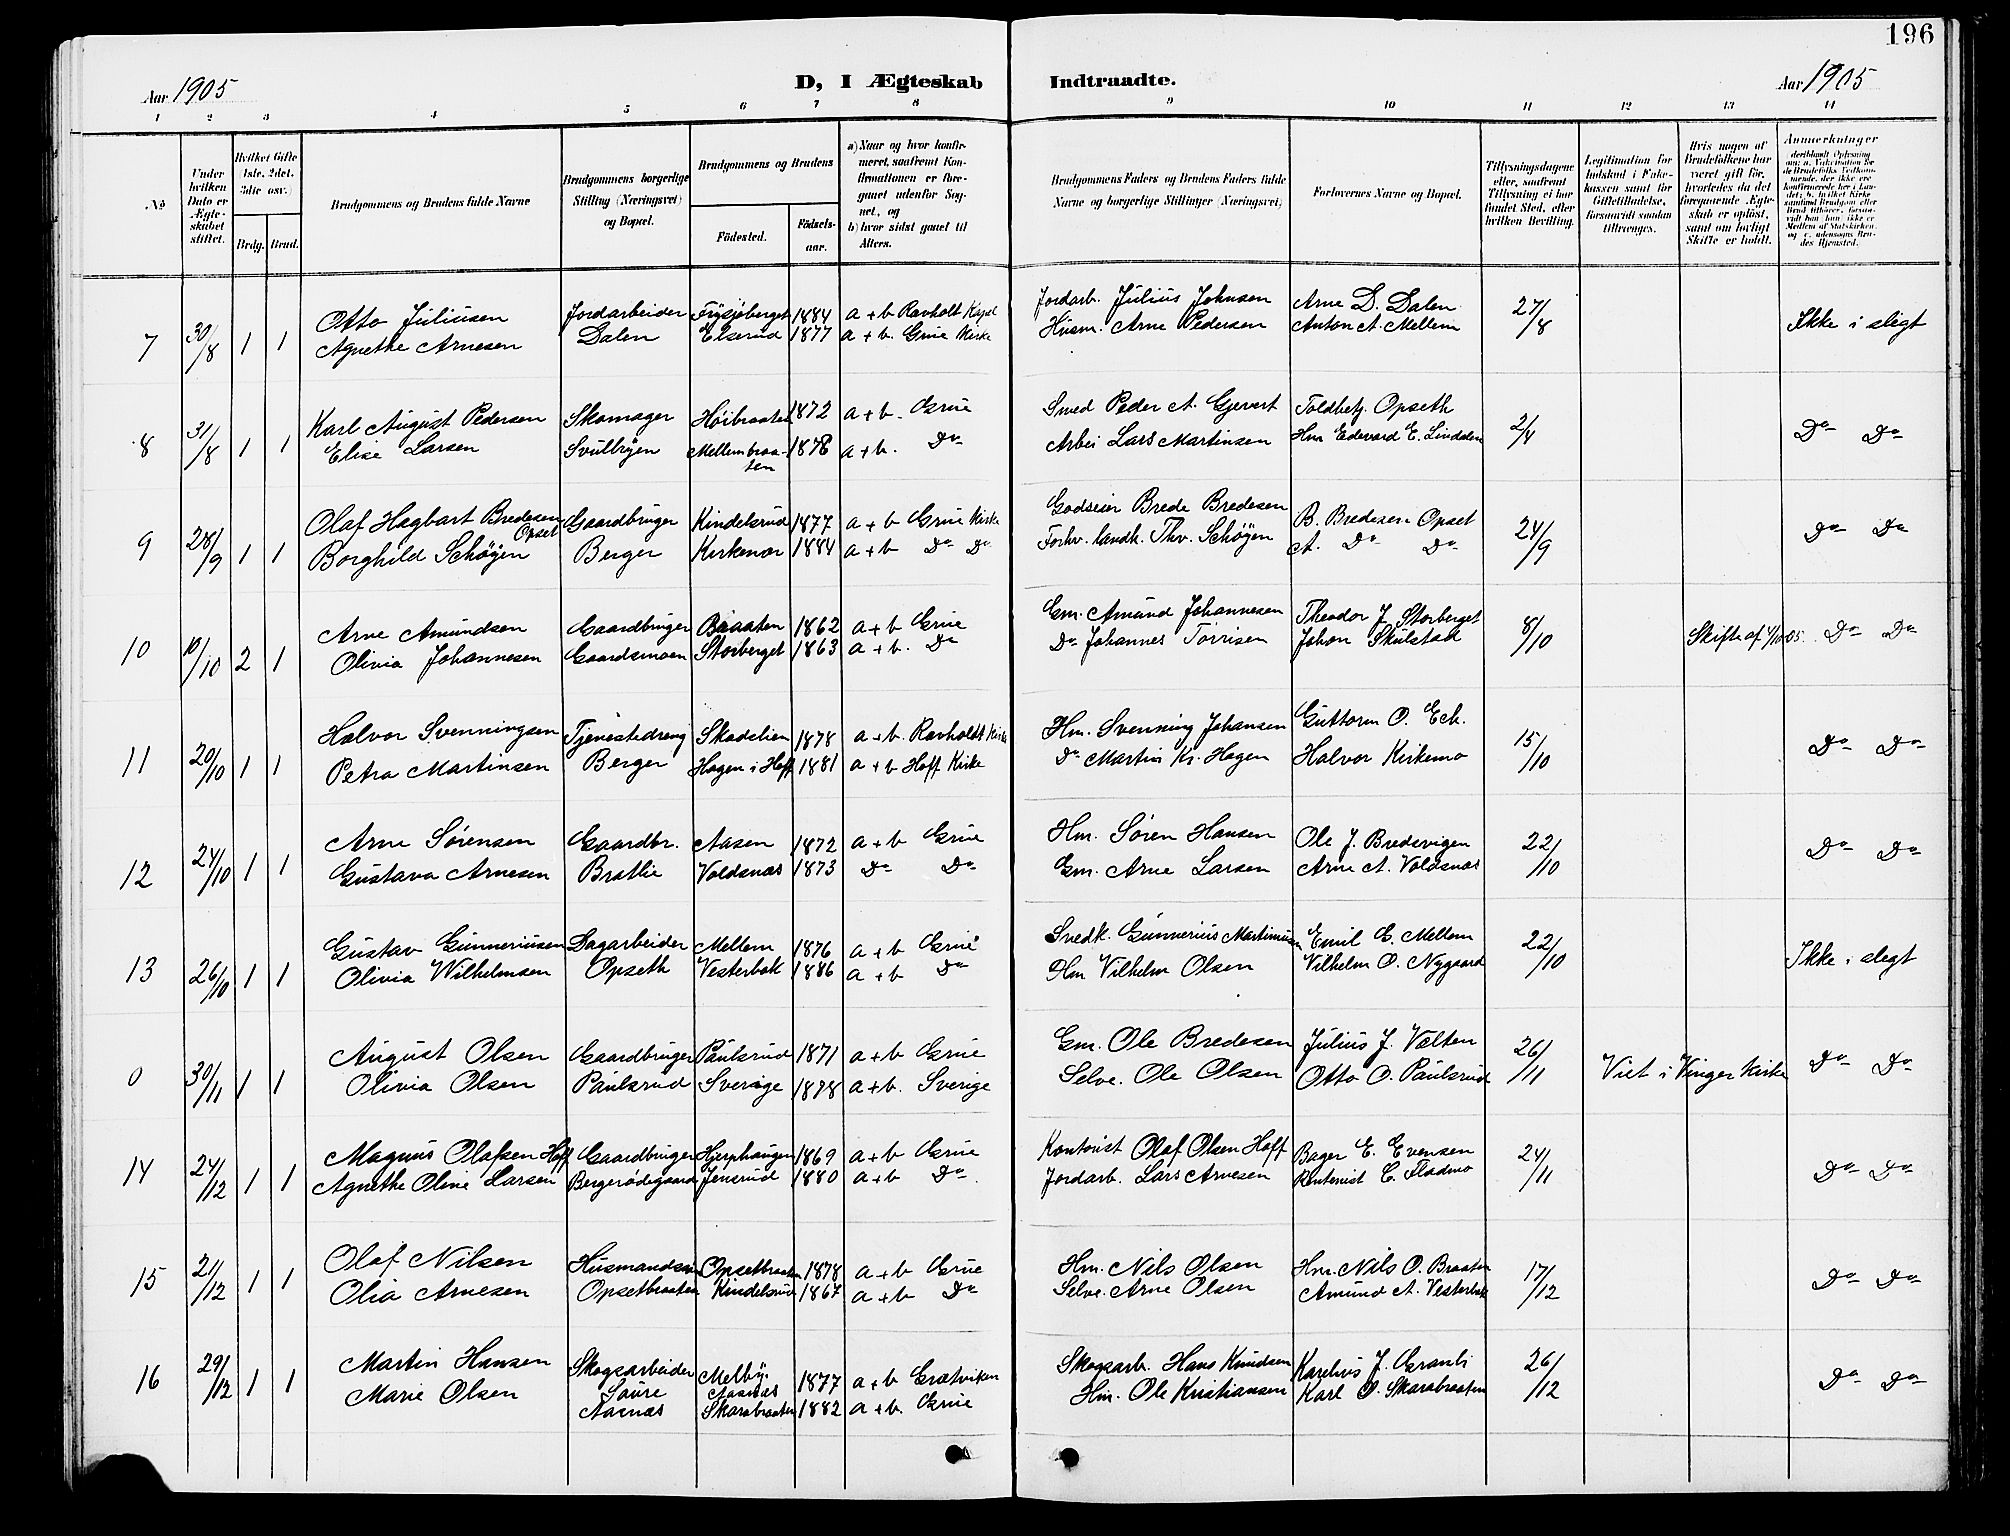 196
Aar 1905
D, I Ægteskab Indtraadte.
Aar 1905
1 2 3 4 5 6 7 8 9 10 11 12 13 14
No
Under hvilken Dato er Ægteskabet stiftet.
Hvilket Gifte (1ste, 2det, 3die osv.)
Brdg. Brud.
Brudgommens og Brudens fulde Navne
Brudgommens borgerlige Stilling (Næringsvei) og Bopæl.
Brudgommens og Brudens
Fødested.
Fødselsaar.
a) Naar og hvor konfirmeret, saafremt Konfirmationen er foregaaet udenfor Sognet, og
b) hvor sidst gaaet til Alters.
Brudgommens Faders og Brudens Faders fulde Navne og borgerlige Stillinger (Næringsvei)
Forlovernes Navne og Bopæl.
Tillysningsdagene eller, saafremt Tillysning ei har fundet Sted, efter hvilken Bevilling.
Legitimation for Indskud i Enkekassen samt for Giftetilladelse, forsaavidt saadan tiltrænges.
Hvis nogen af Brudefolkene har været gift før, hvorledes da det foregaaende Ægteskab er opløst, samt om lovligt Skifte er holdt.
Anmerkninger
7 30/8 1 1 Otto Juliusen Jordarbeider Frysjøberget 1884 a + b Ravholt Kapel Jordarb. Julius Johnsen Arne D. Dalen 27/8 Ikke i slegt
Agnethe Arnesen Dalen Elserud 1877 a + b. Grue Kirke Husm. Arne Pedersen Anton A. Mellem
8 31/8 1 1 Karl August Pedersen Skomager Høibraaten 1872 a + b. Grue Smed Peder A. Gjerert Toldbetj. Opseth 2/4 Do Do
Elise Larsen Svulbryen Mellembraaten 1878 a + b. Do Arbei Lars Martinsen Hm Edevard E. Lindalen
9 28/9 1 1 Olaf Hagbart Bredesen Opset Gaardbruger Kindelsrud 1877 a + b Grue Kirke Godseier Brede Bredesen B. Bredesen Opset 24/9 Do Do
Borghild Schøyen Berger Kirkenær 1884 a + b Do Do Forhv. landh. Thv. Schøyen A. Do Do
10 10/10 2 1 Arne Amundsen Gaardbruger Braaten 1862 a + b Grue Gm. Amund Johannesen Theodor J. Storberget 8/10 Skifte af 4/10 05. Do Do
Olivia Johannesen Gaardsmoen Storberget 1863 a + b. Do Do Johannes Torrisen Johan Skulstad
11 20/10 1 1 Halvor Svenningsen Tjenestedreng Skadelien 1878 a + b. Ravholdt Kirke Hm. Svenning Johansen Guttorm O. Eck. 15/10 Do Do
Petra Martinsen Berger Hagen i Hoff 1881 a + b Hoff Kirke Do Martin Kr. Hagen Halvor Kirkemo
12 24/10 1 1 Arne Sørensen Gaardbr. Aasen 1872 a + b Grue Hm. Søren Hansen Ole J. Bredevigen 22/10 Do Do
Gustava Arnesen Bratlie Voldsnæs 1873 Do Do Gm. Arne Larsen Arne A. Voldsnæs
13 26/10 1 1 Gustav Gunneriusen Dagarbeider Mellem 1876 a + b Grue Snedk. Gunnerius Martinusen Emil E. Mellem 22/10 Ikke i slegt
Olivia Wilhelmsen Opseth Vesterbak 1886 a + b Do Hm Vilhelm Olsen Vilhelm O. Nygaard
0 30/11 1 1 August Olsen Gaardbruger Paulsrud 1871 a + b Grue Gm. Ole Bredesen Julius J. Vælten 26/11 Viet i Vinger Kirke Do Do
Olivia Olsen Paulsrud Sverige 1878 a + b. Sverige Selve. Ole Olsen Otto O. Paulsrud
14 24/12 1 1 Magnus Olafsen Hoff Gaardbruger Hjerphaugen 1869 a + b Grue Kontorist Olaf Olsen Hoff Bager E. Evensen 24/11 Do Do
Agnethe Oline Larsen Bergerødegaard Jensrud 1880 a + b Do. Jordarb. Lars Arnesen Rentenist C. Fladmo
15 21/12 1 1 Olaf Nilsen Husmandsøn Opsetbraaten 1878 a + b Grue Hm. Nils Olsen Hm. Nils O. Braaten 17/12 Do Do
Olia Arnesen Opsetbraaten Kindelsrud 1867 a + b Do Selve. Arne Olsen Amund A. Vesterbak
16 29/12 1 1 Martin Hansen Skogsarbeider Melby. Aasnæs 1877 a + b Grætviken Skogsarb. Hans Knudsen Karelius J. Granli 26/12 Do Do
Marie Olsen Saure Aasnæs Skarabraaten 1882 a + b. Grue Hm. Ole Kristiansen Karl O. Skarabraaten